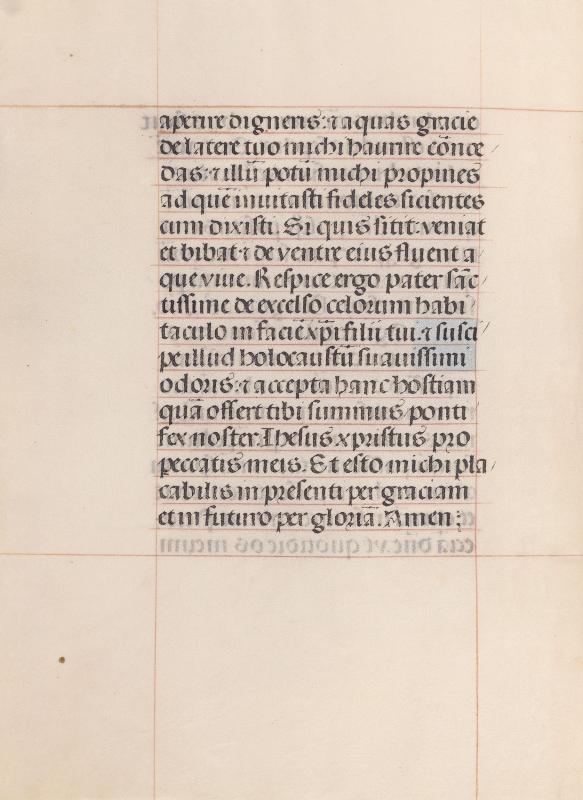 aperire digneris: ⁊ aquas gracie
de latere tuo michi haurire cōnce
das: ⁊ illū potū michi propines
ad quē inuitasti fideles sicientes
cum dixisti. Si quis sitit: veniat
et bibat ⁊ de ventre eius fluent a
que viue. Respice ergo pater sāc
tissime de excelso celorum habi
taculo in faciē xp̄i filii tui. ⁊ susci
pe illud holocaustū suauissimi
odoris: ⁊ accepta hanc hostiam
quā offert tibi summus ponti
fex noster. Ihesus xpristus pro
peccatis meis. Et esto michi pla
cabilis in presenti per graciam
et in futuro per gloriā. Amen: